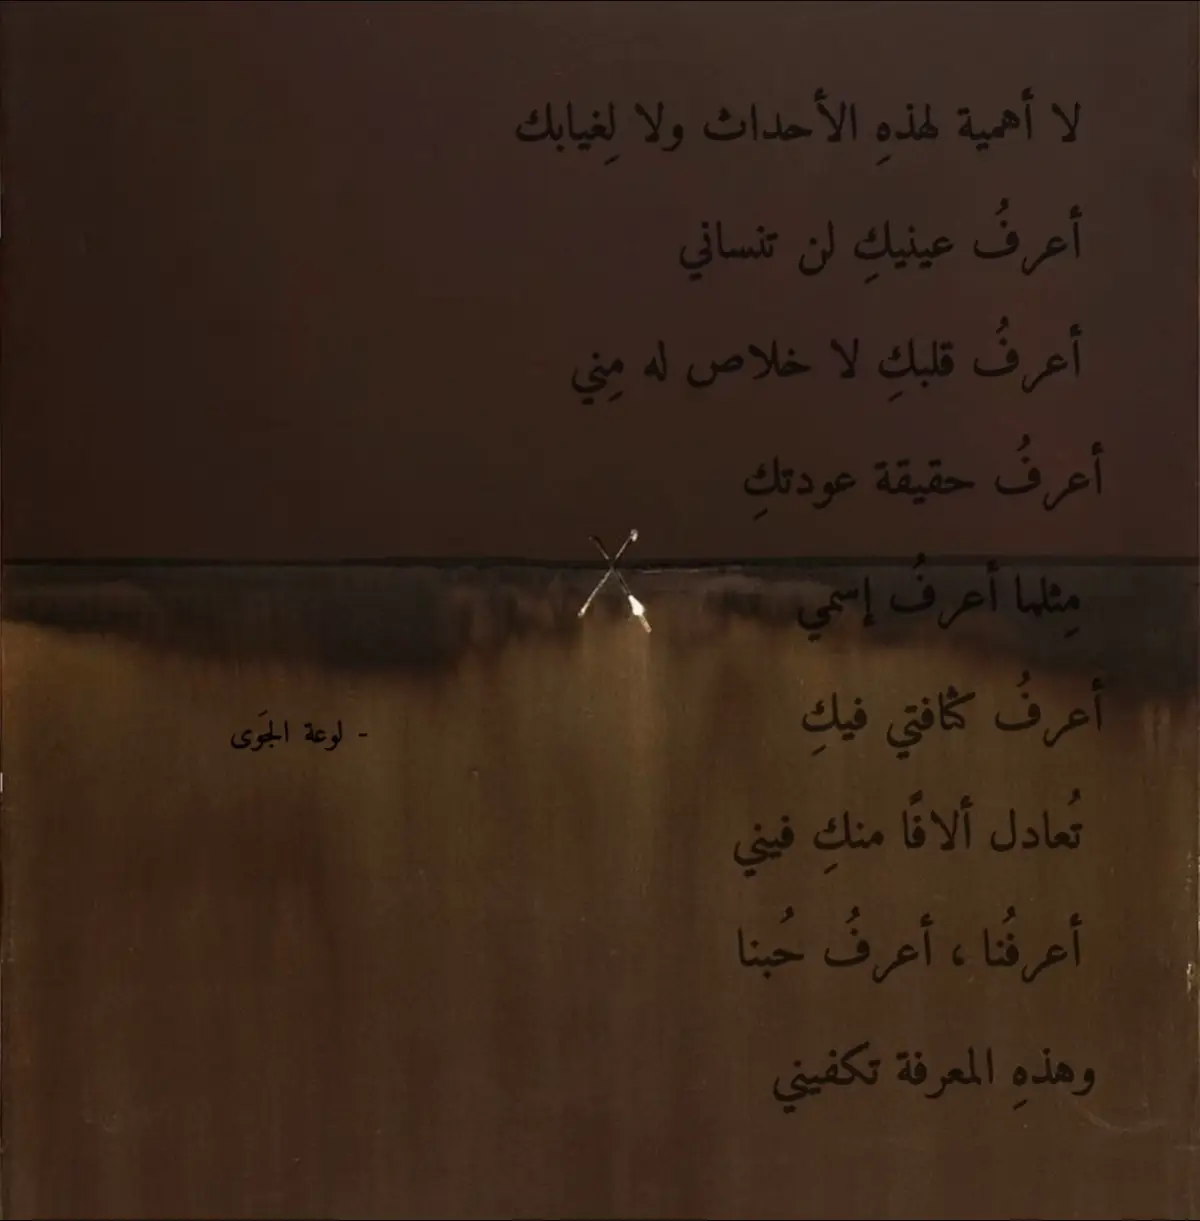 لا أهمية لهذهِ الأحداث ولا لِغيابك
أعرفُ عينيكِ لن تنساني
أعرفُ قلبكِ لا خلاص له مِني
أعرفُ حقيقة عودتكِ
مِثلما أعرفُ إسمي
أعرفُ كثافتي فيكِ
- لوعة الجَوى
تُعادل ألافًا منكِ فيني
أعرفُنا ، أعرفُ حُبنا
وهذهِ المعرفة تكفيني